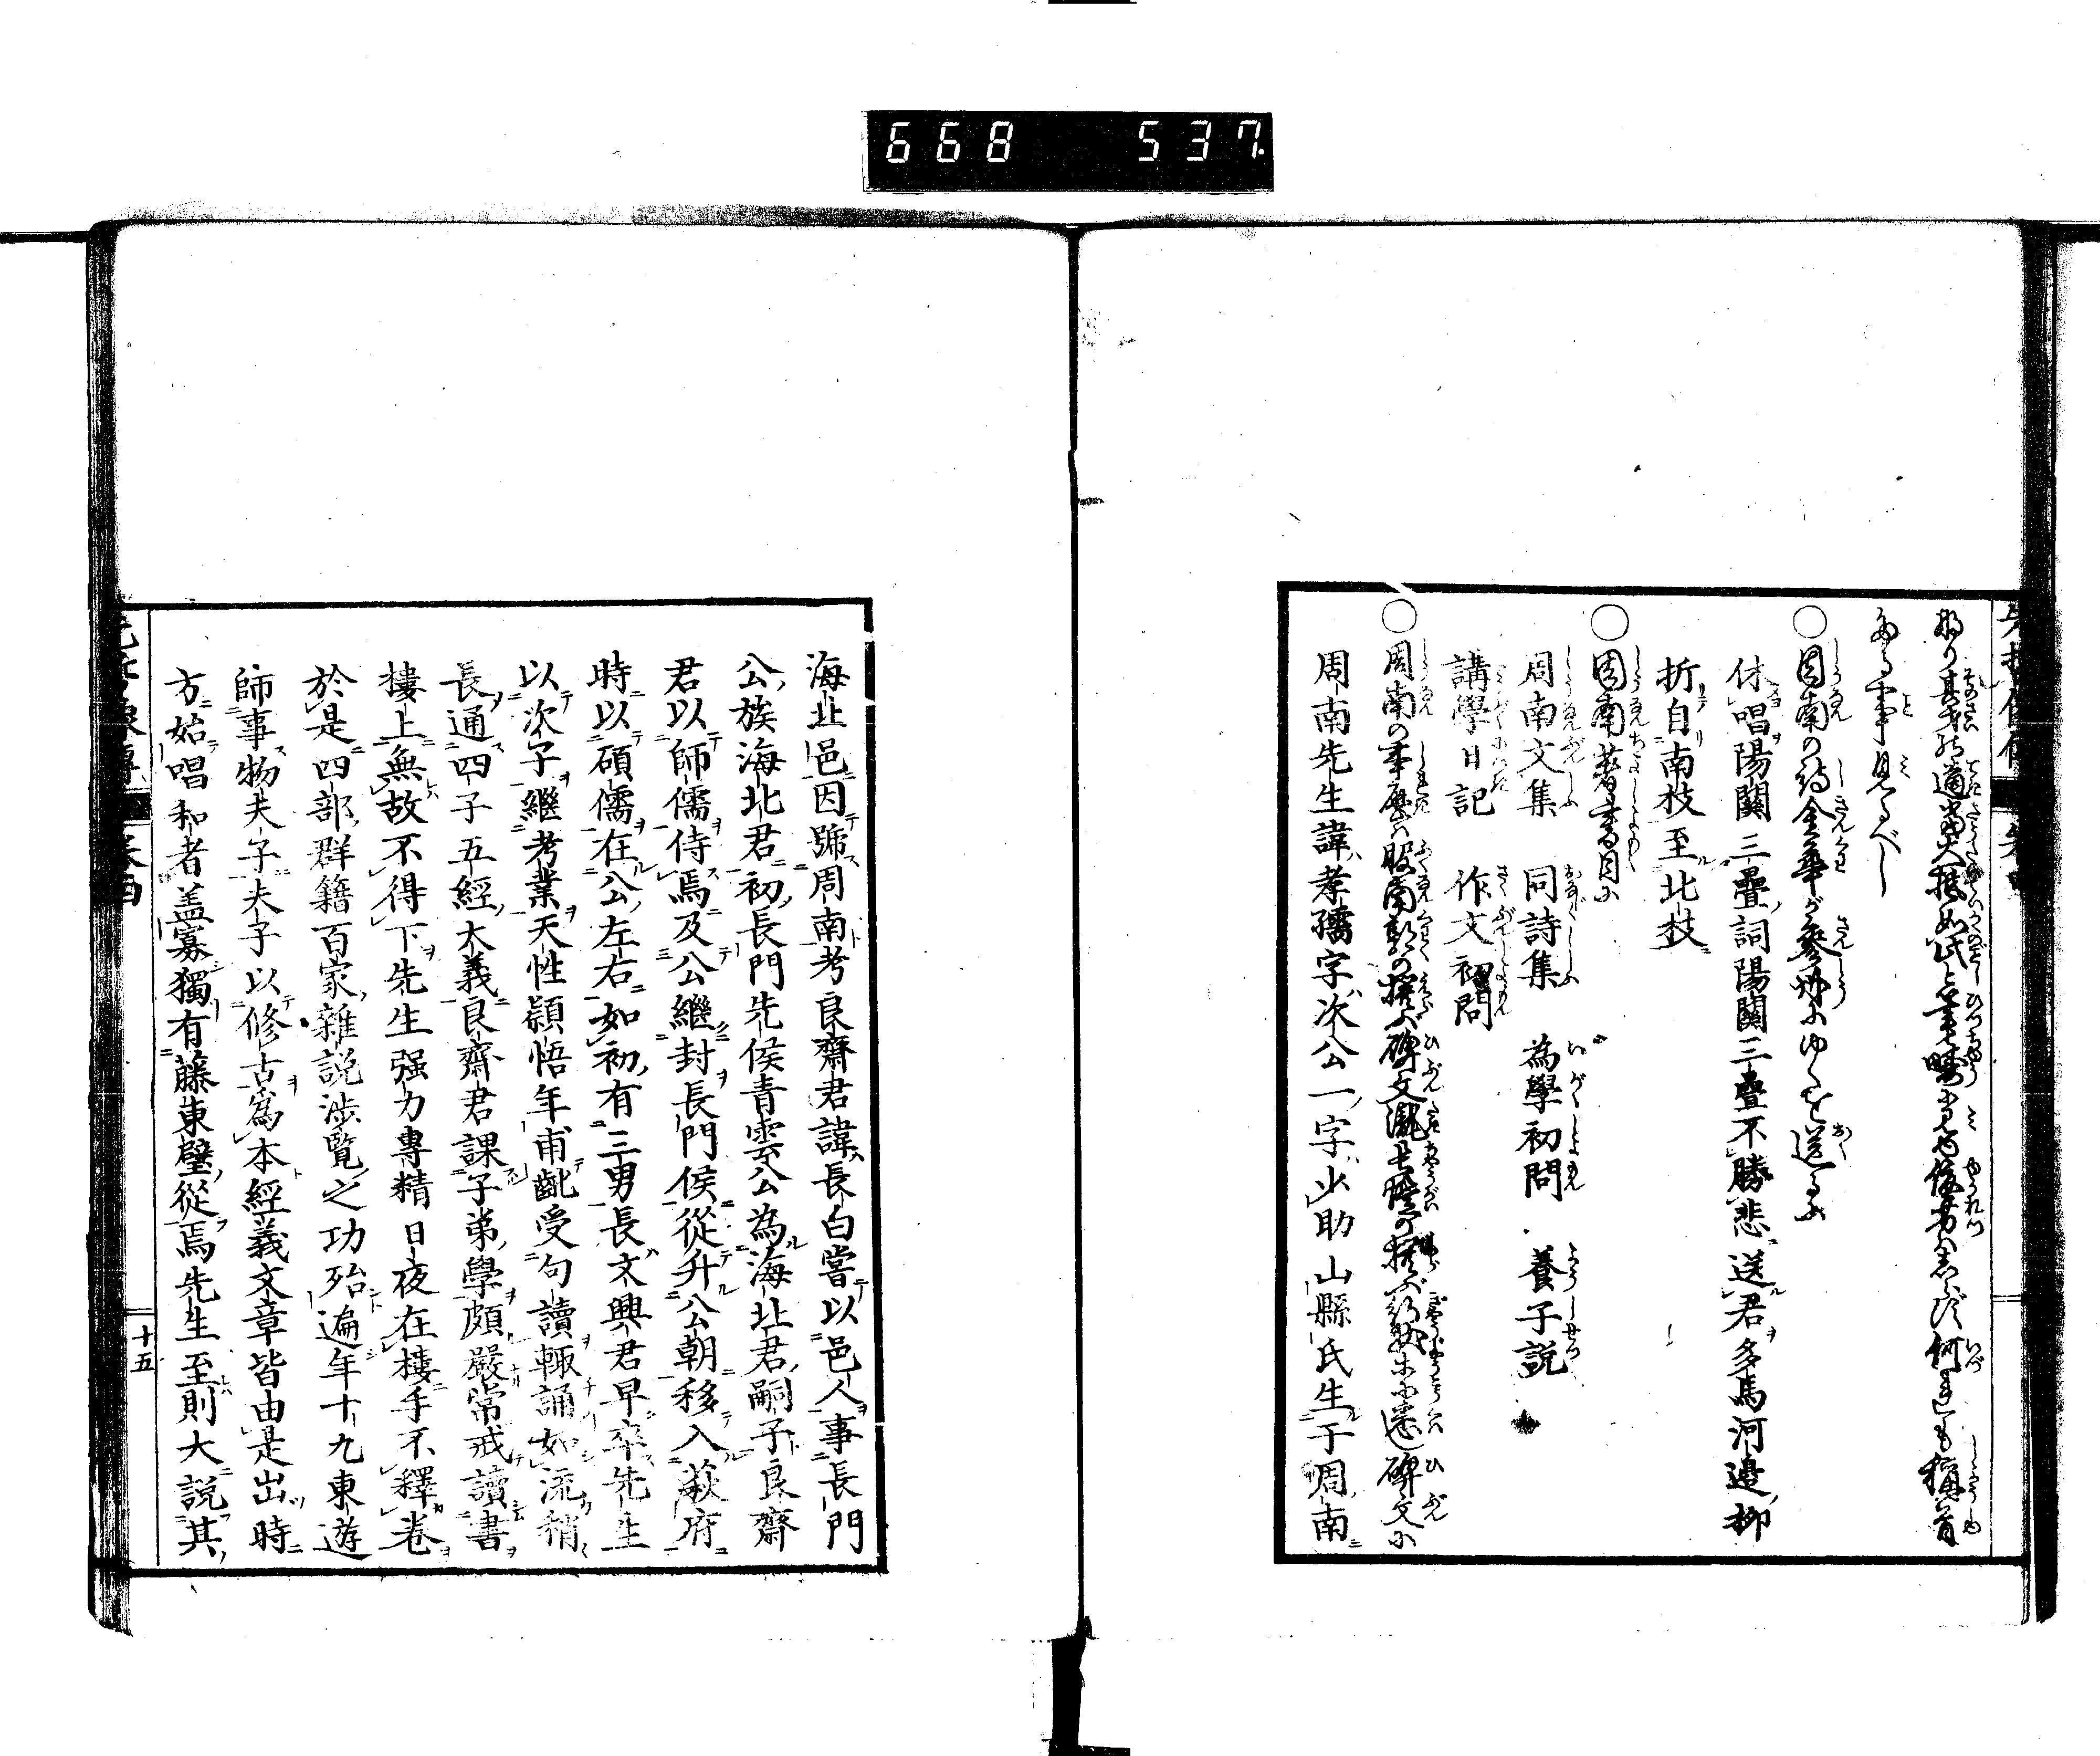 668 537
たる事見るべし
○周南の詩金華が參州にゆくを送るに
休唱陽關三疊詞陽關三疊不勝悲送君多馬河邊柳
折自南枝至北枝
○周南著書目に
周南文集 同詩集 為學初問 養子説
講學日記 作文初問
周南先生諱孝孺字次公一字少助山縣氏生于周南
海北邑因號周南考良齋君諱長白嘗以邑人事長門
公族海北君初長門先侯青雲公為海北君嗣子良齋
君以師儒侍焉及公繼封長門侯從升公朝移入萩府
時以碩儒在公左右如初有三男長文興君早卒先生
以次子繼考業天性穎悟年甫齔受句讀輙誦如流稍
長通四子五經大義良齋君課子弟學頗嚴常戒讀書
樓上無故不得下先生强力專精日夜在樓手不釋卷
於是四部群籍百家雜説渉覧之功殆遍年十九東遊
師事物夫子夫子以修古爲本經義文章皆由是出時
方始唱和者盖寡獨有藤東壁從焉先生至則大説其
十五